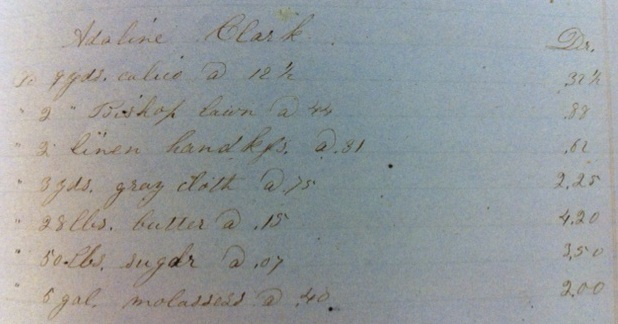 Adaline Clark. Dr.
To 9 yds. calico @ 12½
" 2 " Bishop lawn @ 44 .88
" 2 linen handkfs. @ .31 .62
" 3 yds. gray cloth @ .75 2.25
" 28 lbs. butter @ .15 4.20
" 50 Lbs. sugar @ .07 3,50
" 5 gal. molassess @ .40. 2.00